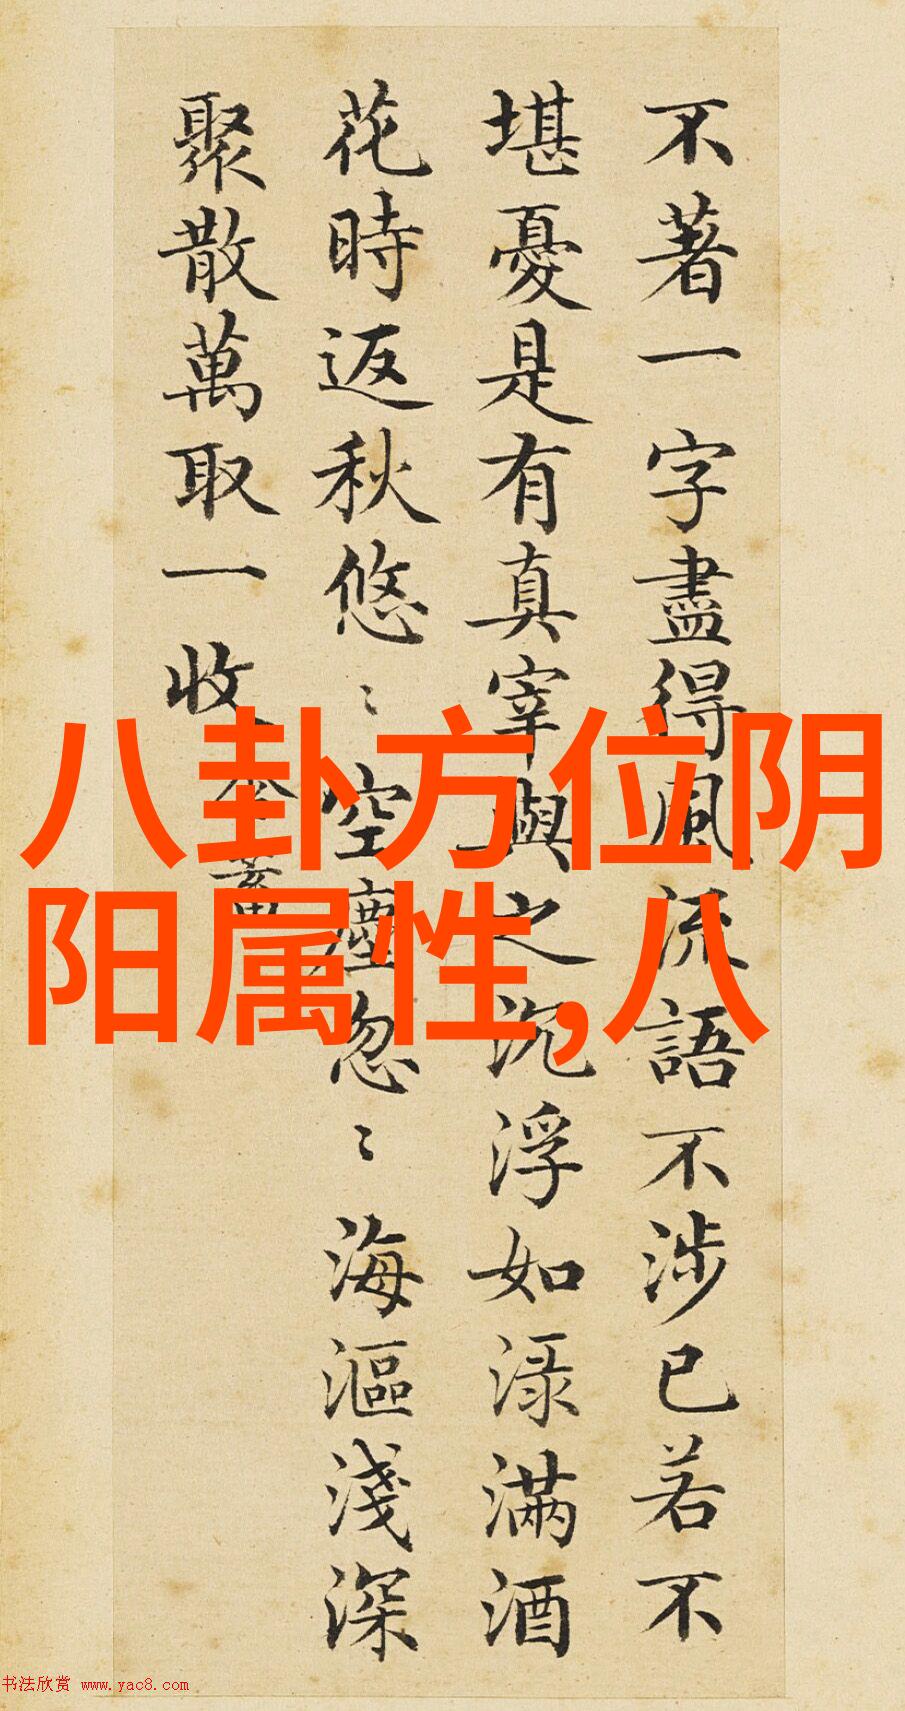 不著一字盡得風流語不涉已若不
堪憂是有真宰與之沉浮如渌滿酒
花時返秋悠〻空塵忽〻海漚淺深
聚散萬取一收
含蓄
八卦方位阴
阳属性,八
书法欣赏 www.yac8.com